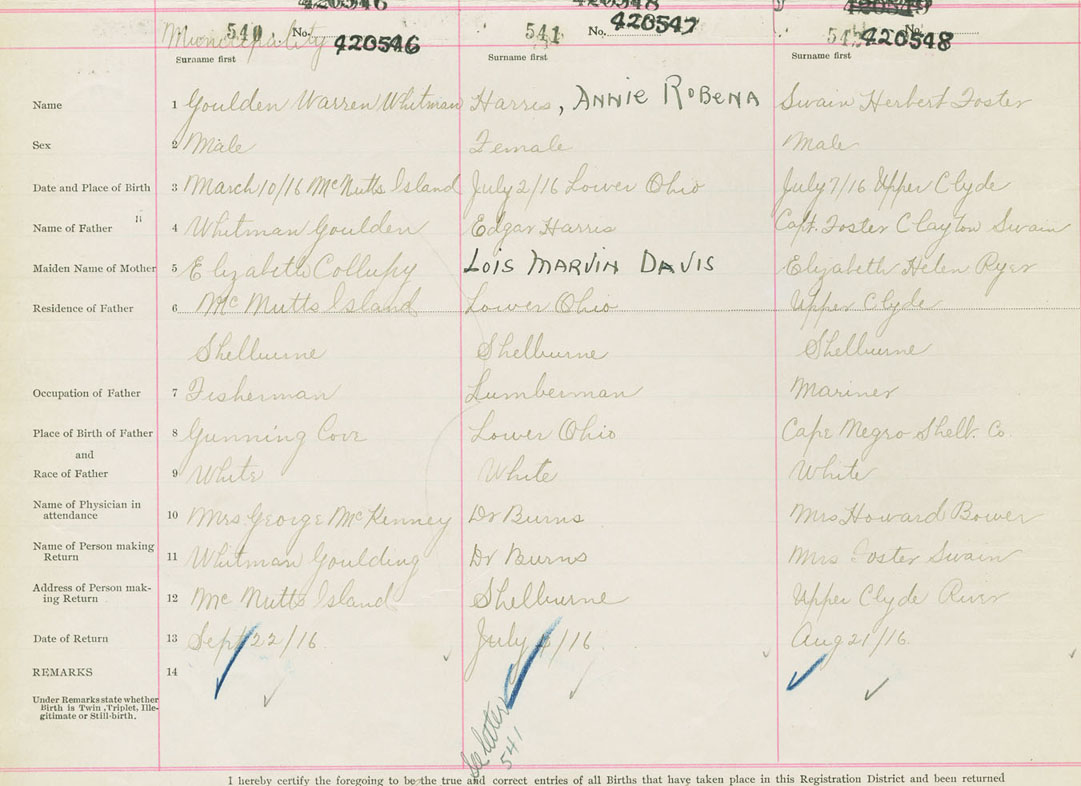 420546 420548
Municipality 540 No. 420546 541 No. 420547 542 No. 420548
Surname first Surname first Surname first
Name 1 Goulden Warren Whitman Harris, ANNIE ROBENA Swain Herbert Foster
Sex 2 Male Female Male
Date and Place of Birth 3 March 10/16 McNutts Island July 2/16 Lower Ohio July 7/16 Upper Clyde
Name of Father 4 Whitman Goulden Edgar Harris Capt. Foster Clayton Swain
Maiden Name of Mother 5 Elizabeth Collupy LOIS MARVIN DAVIS Elizabeth Helen Ryer
Residence of Father 6 Mc Nutts Island Lower Ohio Upper Clyde
Shelburne Shelburne Shelburne
Occupation of Father 7 Fisherman Lumberman Mariner
Place of Birth of Father 8 Gunning Cove Lower Ohio Cape Negro Shelb. Co.
and
Race of Father 9 White White White
Name of Physician in
attendance 10 Mrs George McKenney Dr Burns Mrs Howard Bower
Name of Person making
Return 11 Whitman Goulding Dr Burns Mrs Foster Swain
Address of Person mak-
ing Return 12 Mc Nutts Island Shelburne Upper Clyde River
Date of Return 13 Sept 22/16 July /16 Aug 21/16.
REMARKS 14
Under Remarks state whether
Birth is Twin, Triplet, Ille-
gitimate or Still-birth.
See letter
541
I hereby certify the foregoing to be the true and correct entries of all Births that have taken place in this Registration District and been returned